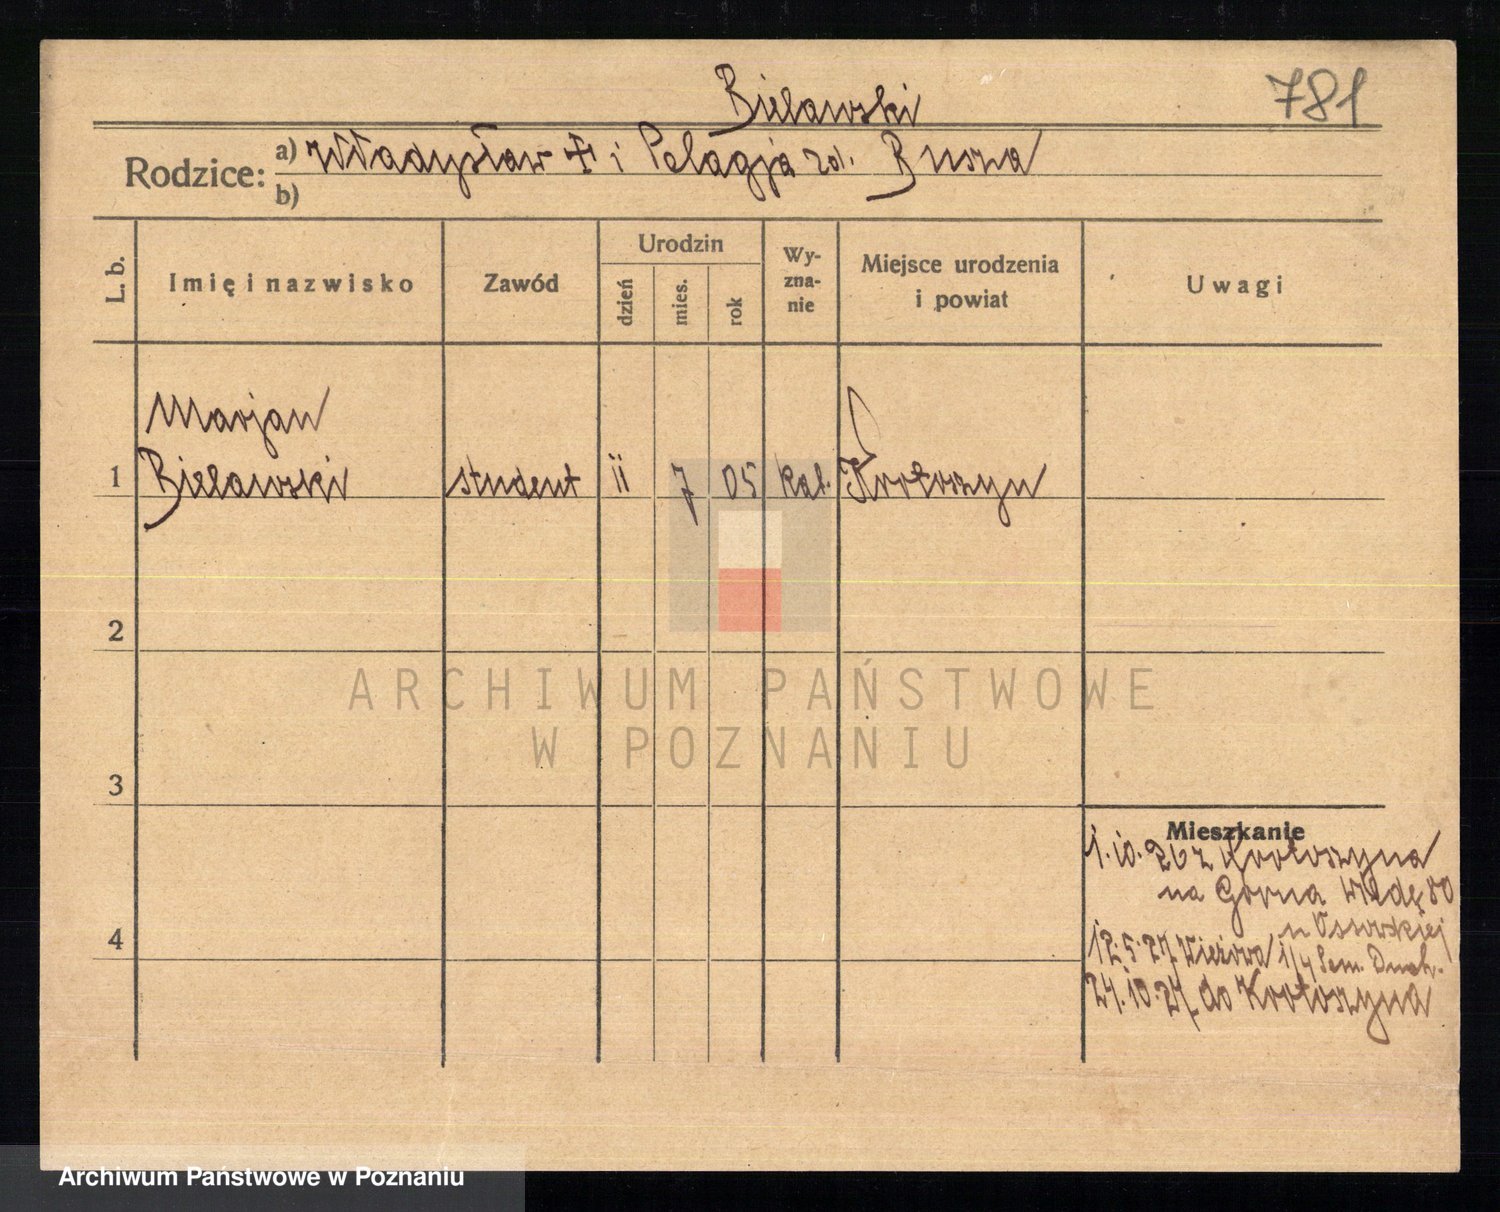 Bielawski
781
Rodzice: a) Władysław + i Pelagja zd. Busza
b)
L. b. Imię i nazwisko Zawód Urodzin dzień mies. rok Wyznanie Miejsce urodzenia i powiat Uwagi
Marjan
1 Bielawski student ii 7 05 kat. Krotoszyn
2
ARCHIWUM PAŃSTWOWE
W POZNANIU
3
Mieszkanie
1.10.26 z Krotoszyna
na Górna Wildę 80
u Ossowskiej
4
12.5.27 Wieżowa 1/4 Sem. Duch.
24.10.27 do Krotoszyna
Archiwum Państwowe w Poznaniu